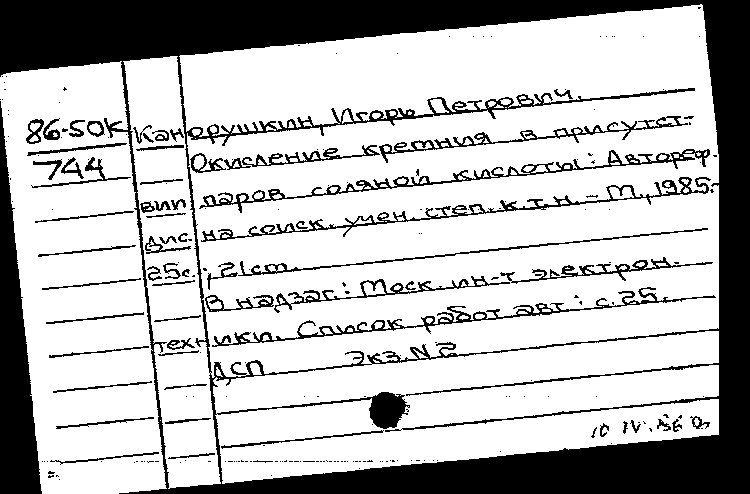 86-50К
744
Канарушкин, Игорь Петрович.
Окисление кремния в присутст-
вии паров соляной кислоты: Автореф.
дис. на соиск. учен. степ. к.т.н. – М., 1985.-
25с.; 21cm.
В надзаг.: Моск. ин-т электрон.
техники. Список работ авт.: с. 25.
ДСП Экз. N 2
10 IV.86